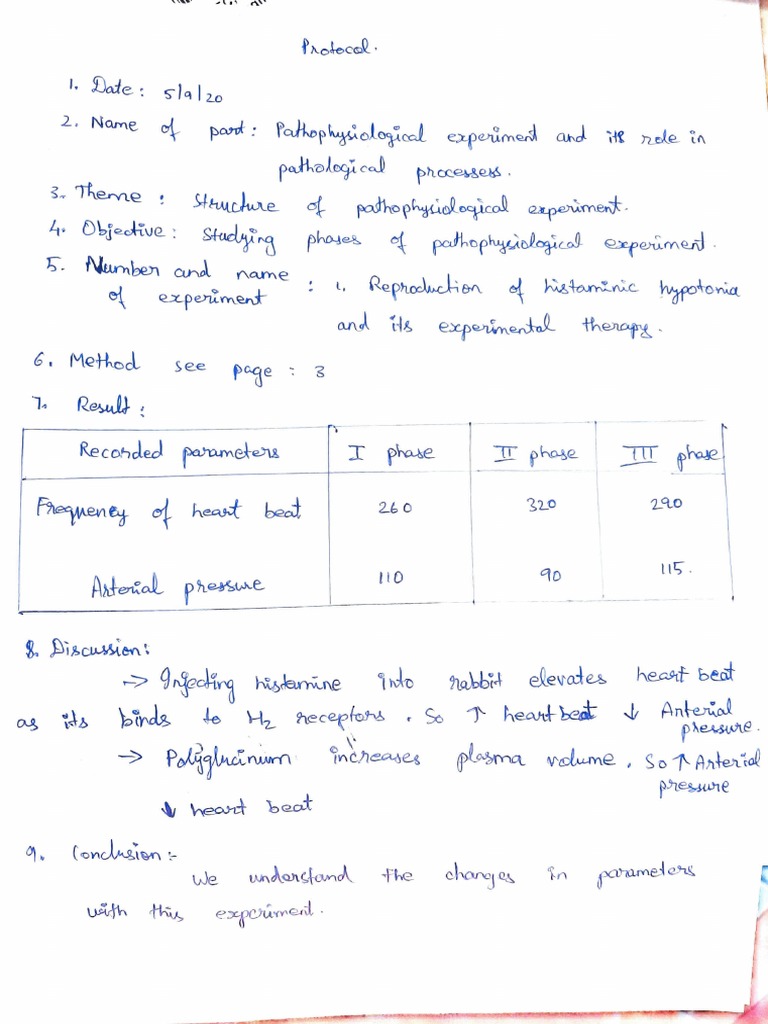 Protocol.
1. Date: 5/9/20
2. Name of part: Pathophysiological experiment and its role in
pathological processess.
3. Theme: Structure of pathophysiological experiment.
4. Objective: Studying phases of pathophysiological experiment.
5. Number and name
of experiment : 1. Reproduction of histaminic hypotonia
and its experimental therapy.
6. Method see page : 3
7. Result:
Recorded parameters I phase II phase III phase
Frequency of heart beat 260 320 290
Arterial pressure 110 90 115.
8. Discussion:
→ Injecting histamine into rabbit elevates heart beat
as its binds to H2 receptors. So ↑ heartbeat ↓ Arterial
pressure.
→ Polyglucinum increases plasma volume. So ↑ Arterial
pressure
↓ heart beat
9. Conclusion:-
We understand the changes in parameters
with this experiment.